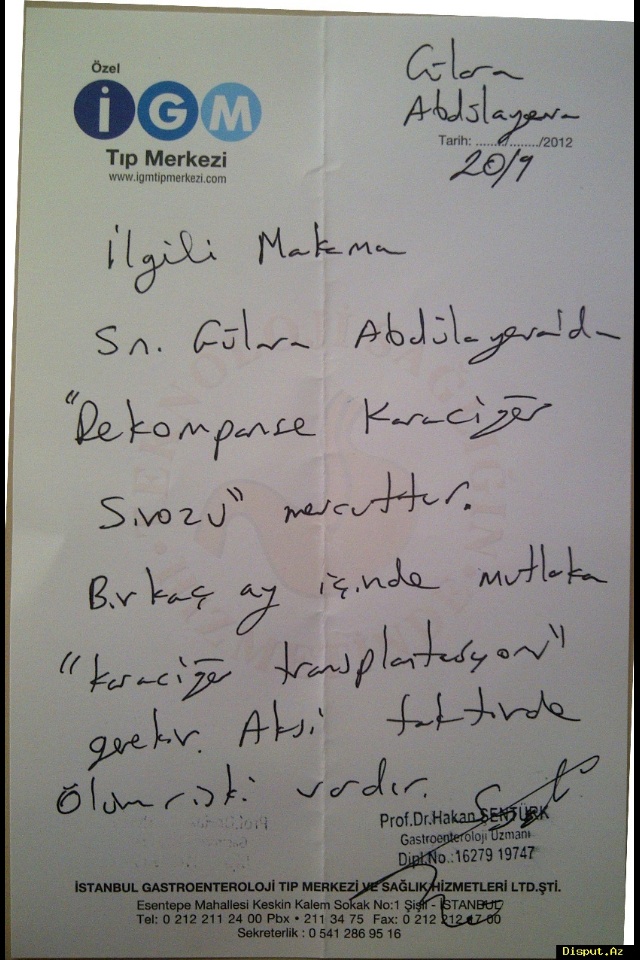 Özel
İGM
Tıp Merkezi
www.igmtipmerkezi.com
Gülara
Abdülayeva
Tarih: ......../......../2012
20/9
İlgili Makama
Sn. Gülara Abdülayeva'da
"Dekompanse Karaciğer
Sirozu" mevcuttur.
Birkaç ay içinde mutlaka
"karaciğer transplantasyonu"
gerekir. Aksi taktirde
Ölüm riski vardır.
Prof.Dr.Hakan ŞENTÜRK
Gastroenteroloji Uzmanı
Dipl.No.:16279 19747
İSTANBUL GASTROENTEROLOJİ TIP MERKEZİ VE SAĞLIK HİZMETLERİ LTD.ŞTİ.
Esentepe Mahallesi Keskin Kalem Sokak No:1 Şişli - İSTANBUL
Tel: 0 212 211 24 00 Pbx • 211 34 75 Fax: 0 212 212 17 00
Sekreterlik : 0 541 286 95 16
Disput.Az